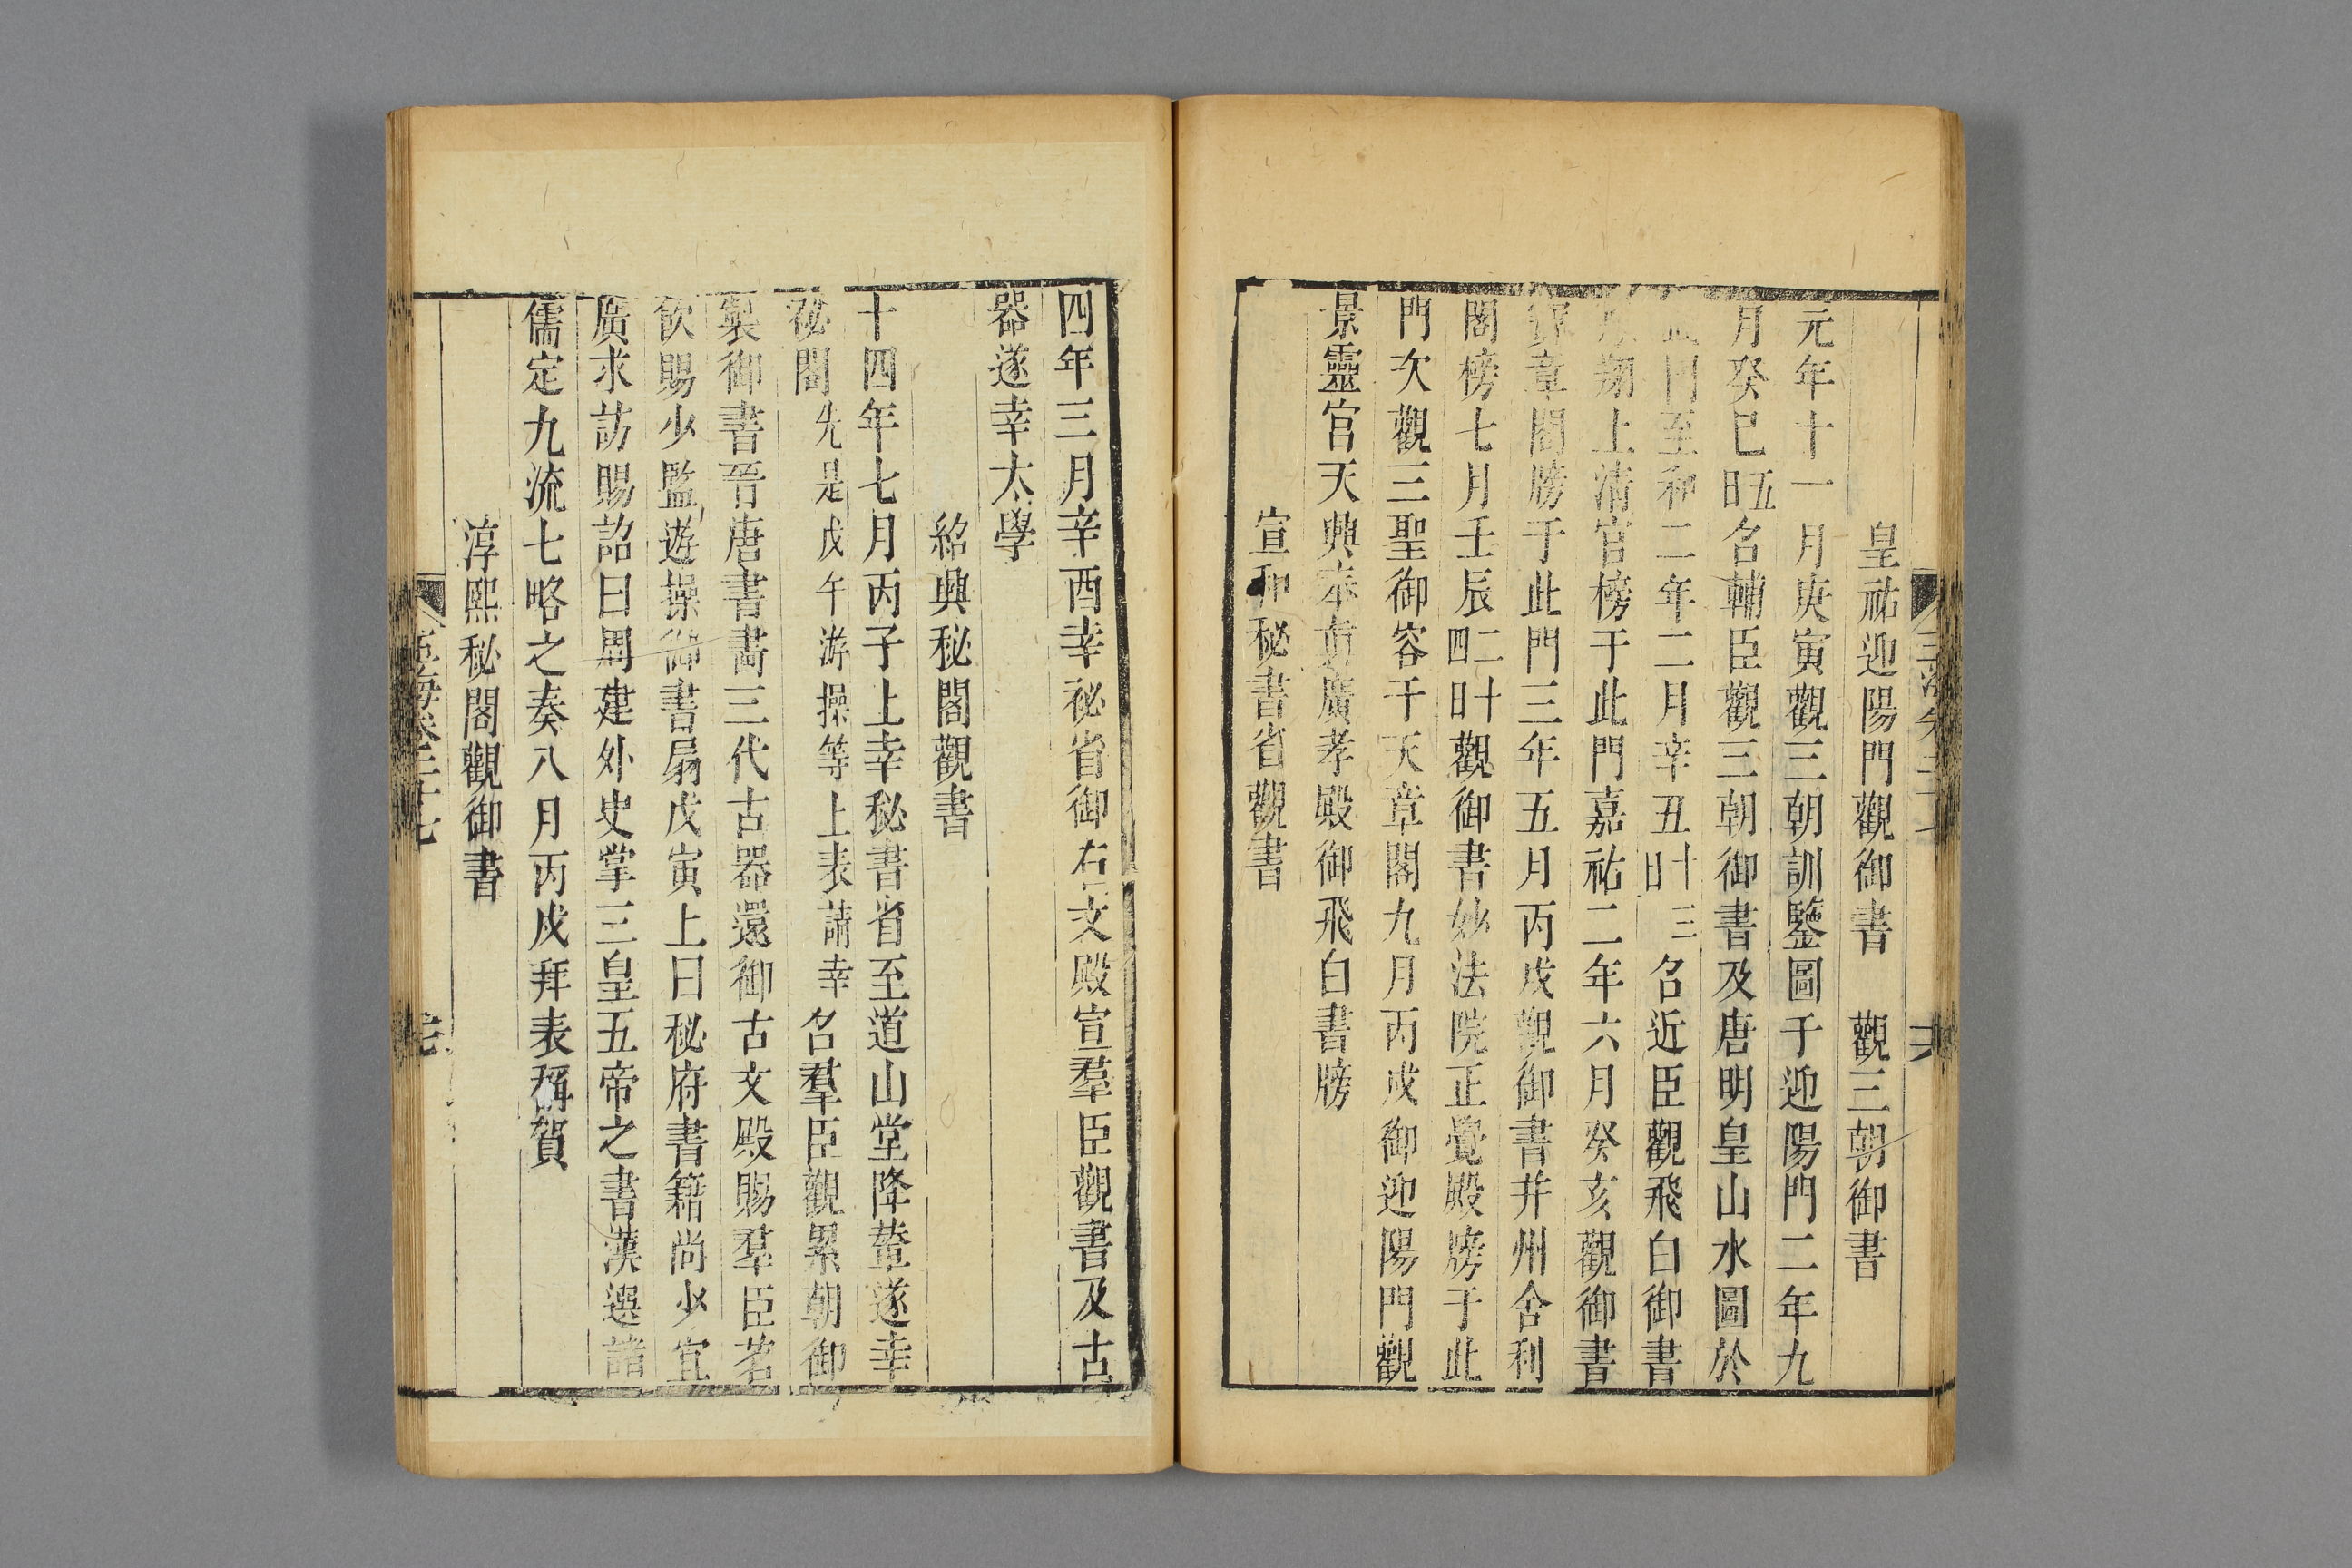 皇祐迎陽門觀御書　觀三朝御書
元年十一月庚寅觀三朝訓鑒圖于迎陽門二年九
月癸巳五日名輔臣觀三朝御書及唐明皇山水圖於
門至和二年二月辛丑十三日名近臣觀飛白御書
翔上清宮榜于此門嘉祐二年六月癸亥觀御書
寶章閣牓于此門三年五月丙戌觀御書并州舍利
閣榜七月壬辰二十四日觀御書妙法院正覺殿牓于此
門次觀三聖御容于天章閣九月丙戌御迎陽門觀
景靈宮天興奉廣孝殿御飛白書牓
宣和秘書省觀書
四年三月辛酉幸祕省御右文殿宣羣臣觀書及古
器遂幸太學
紹興秘閣觀書
十四年七月丙子上幸秘書省至道山堂降輦遂幸
祕閣先是戊午游操等上表請幸名羣臣觀累朝御
製御書晉唐書畵三代古器還御古文殿賜羣臣茗
飲賜少監遊操御書扇戊寅上曰秘府書籍尚少宜
廣求訪賜詔曰周建外史掌三皇五帝之書漢選諸
儒定九流七略之奏八月丙戌拜表稱賀
淳熙秘閣觀御書
玉海卷二十七